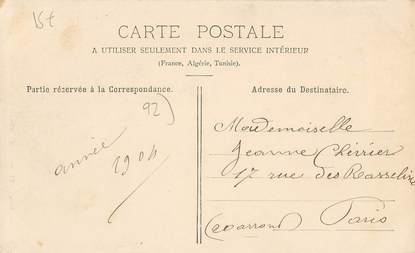 15€
CARTE POSTALE
A UTILISER SEULEMENT DANS LE SERVICE INTÉRIEUR
(France, Algérie, Tunisie).
Partie réservée à la Correspondance.
Adresse du Destinataire.
92)
année
1904
Mademoiselle
Jeanne Chérrier
17 rue des
Paris